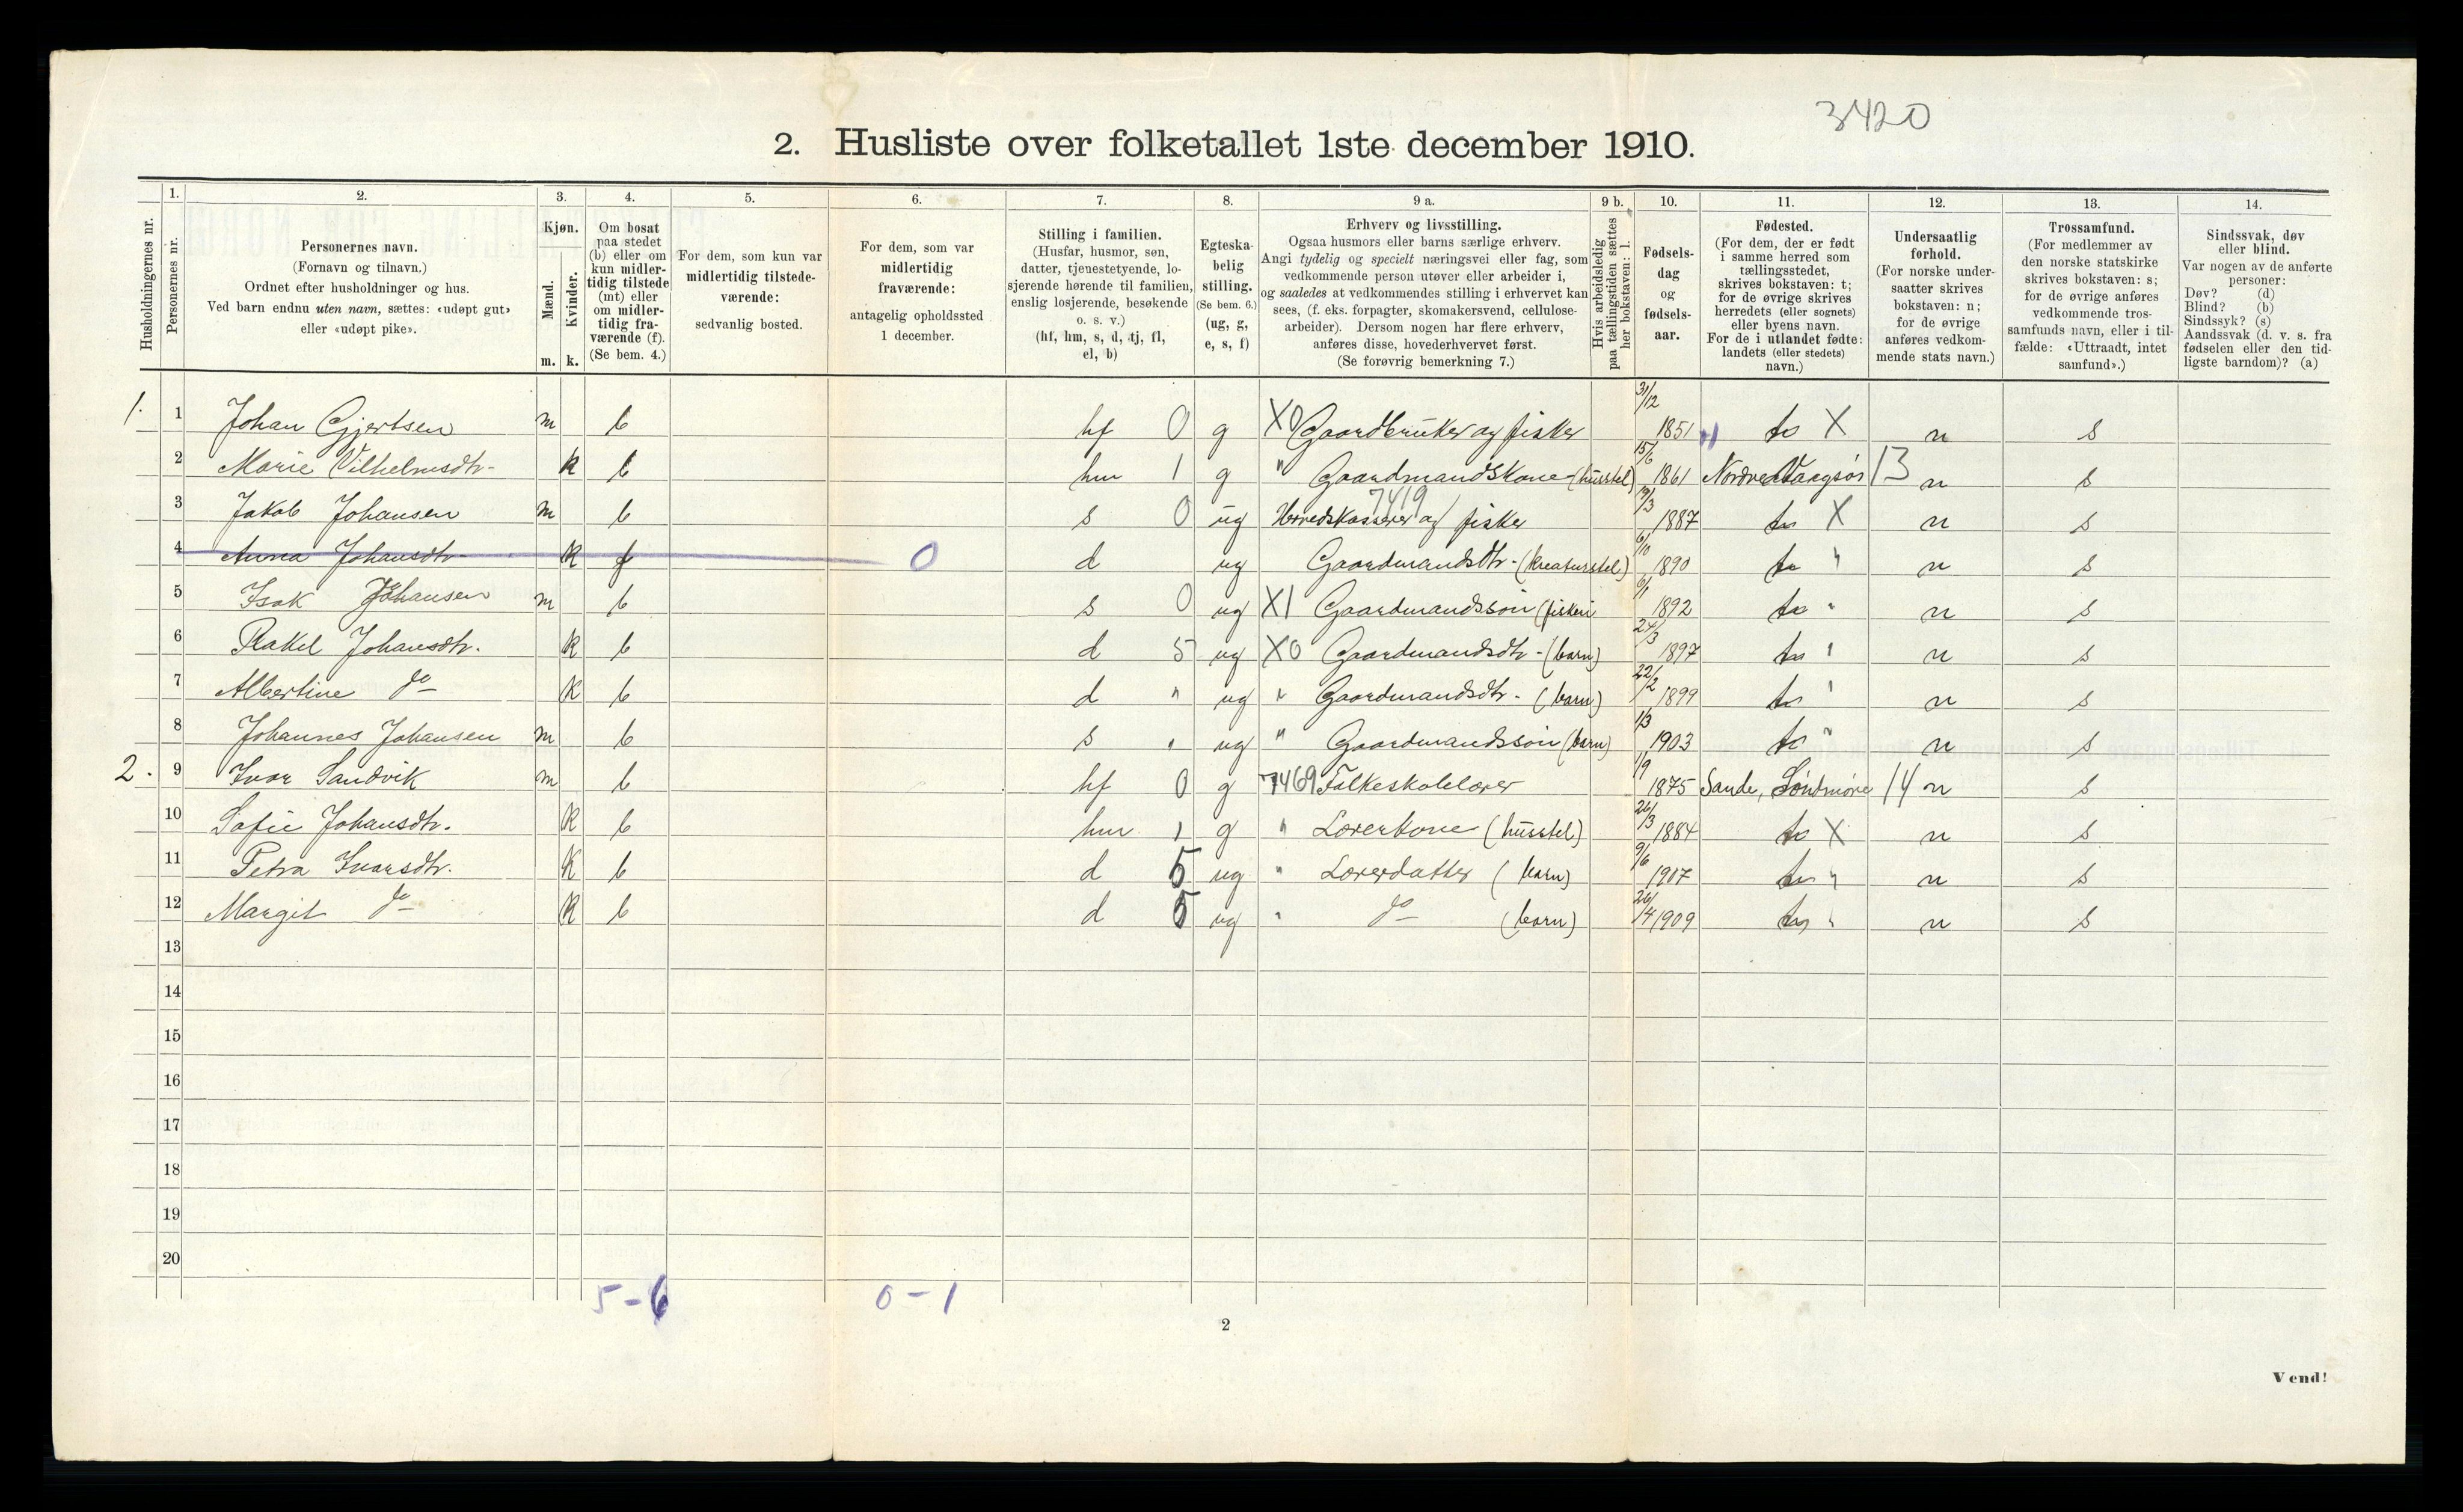 3420
2. Husliste over folketallet 1ste december 1910.
Husholdningernes nr.
1. Personernes nr.
2. Personernes navn.
(Fornavn og tilnavn.)
Ordnet efter husholdninger og hus.
Ved barn endnu uten navn, sættes: «udøpt gut»
eller «udøpt pike».
3. Kjøn.
Mænd. m.
Kvinder. k.
4. Om bosat
paa stedet
(b) eller om
kun midler-
tidig tilstede
(mt) eller
om midler-
tidig fra-
værende (f).
(Se bem. 4.)
5. For dem, som kun var
midlertidig tilstede-
værende:
sedvanlig bosted.
6. For dem, som var
midlertidig
fraværende:
antagelig opholdssted
1 december.
7. Stilling i familien.
(Husfar, husmor, søn,
datter, tjenestetyende, lo-
sjerende hørende til familien,
enslig losjerende, besøkende
o. s. v.)
(hf, hm, s, d, tj, fl,
el, b)
8. Egteska-
belig
stilling.
(Se bem. 6.)
(ug, g,
e, s, f)
9 a. Erhverv og livsstilling.
Ogsaa husmors eller barns særlige erhverv.
Angi tydelig og specielt næringsvei eller fag, som
vedkommende person utøver eller arbeider i,
og saaledes at vedkommendes stilling i erhvervet kan
sees, (f. eks. forpagter, skomakersvend, cellulose-
arbeider). Dersom nogen har flere erhverv,
anføres disse, hovederhvervet først.
(Se forøvrig bemerkning 7.)
9 b. Hvis arbeidsledig
paa tællingstiden sættes
her bokstaven: l.
10. Fødsels-
dag
og
fødsels-
aar.
11. Fødested.
(For dem, der er født
i samme herred som
tællingsstedet,
skrives bokstaven: t;
for de øvrige skrives
herredets (eller sognets)
eller byens navn.
For de i utlandet fødte:
landets (eller stedets)
navn.)
12. Undersaatlig
forhold.
(For norske under-
saatter skrives
bokstaven: n;
for de øvrige
anføres vedkom-
mende stats navn.)
13. Trossamfund.
(For medlemmer av
den norske statskirke
skrives bokstaven: s;
for de øvrige anføres
vedkommende tros-
samfunds navn, eller i til-
fælde: «Uttraadt, intet
samfund».)
14. Sindssvak, døv
eller blind.
Var nogen av de anførte
personer:
Døv? (d)
Blind? (b)
Sindssyk? (s)
Aandssvak (d. v. s. fra
fødselen eller den tid-
ligste barndom)? (a)
1. 1 Johan Gjertsen m b hf 0 g X0 Gaardbruker og fisker 31/12 1851 X n s
2 Marie Vilhelmsdtr- k b hm 1 g " Gaardmandskone (husstel) 15/6 1861 Nordre Vaagsø 13 n s
3 Jakob Johansen m b s 0 ug 7419 Herredskasserer og fisker 19/3 1887 X n s
4 Anna Johansdtr k f 0 d ug Gaardmandsdtr- (kreaturstel) 6/10 1890 " n s
5 Isak Johansen m b s 0 ug X1 Gaardmandssøn (fiskeri 6/1 1892 " n s
6 Rakel Johansdtr. k b d 5 ug X0 Gaardmandsdtr- (barn) 24/3 1897 " n s
7 Albertine do k b d " ug " Gaardmandsdtr- (barn) 22/2 1899 " n s
8 Johannes Johansen m b s " ug " Gaardmandssøn (barn) 1/3 1903 " n s
2. 9 Ivar Sandvik m b hf 0 g 7469 Folkeskolelærer 1/9 1875 Sande, Søndmøre 14 n s
10 Sofie Johansdtr. k b hm 1 g " Lærerkone (husstel) 26/3 1884 X n s
11 Petra Ivarsdtr. k b d 5 ug " Lærerdatter (barn) 9/6 1907 " n s
12 Margit do k b d 5 ug " do (barn) 26/4 1909 " n s
13
14
15
16
17
18
19
20
5-6 0-1
2
Vend!